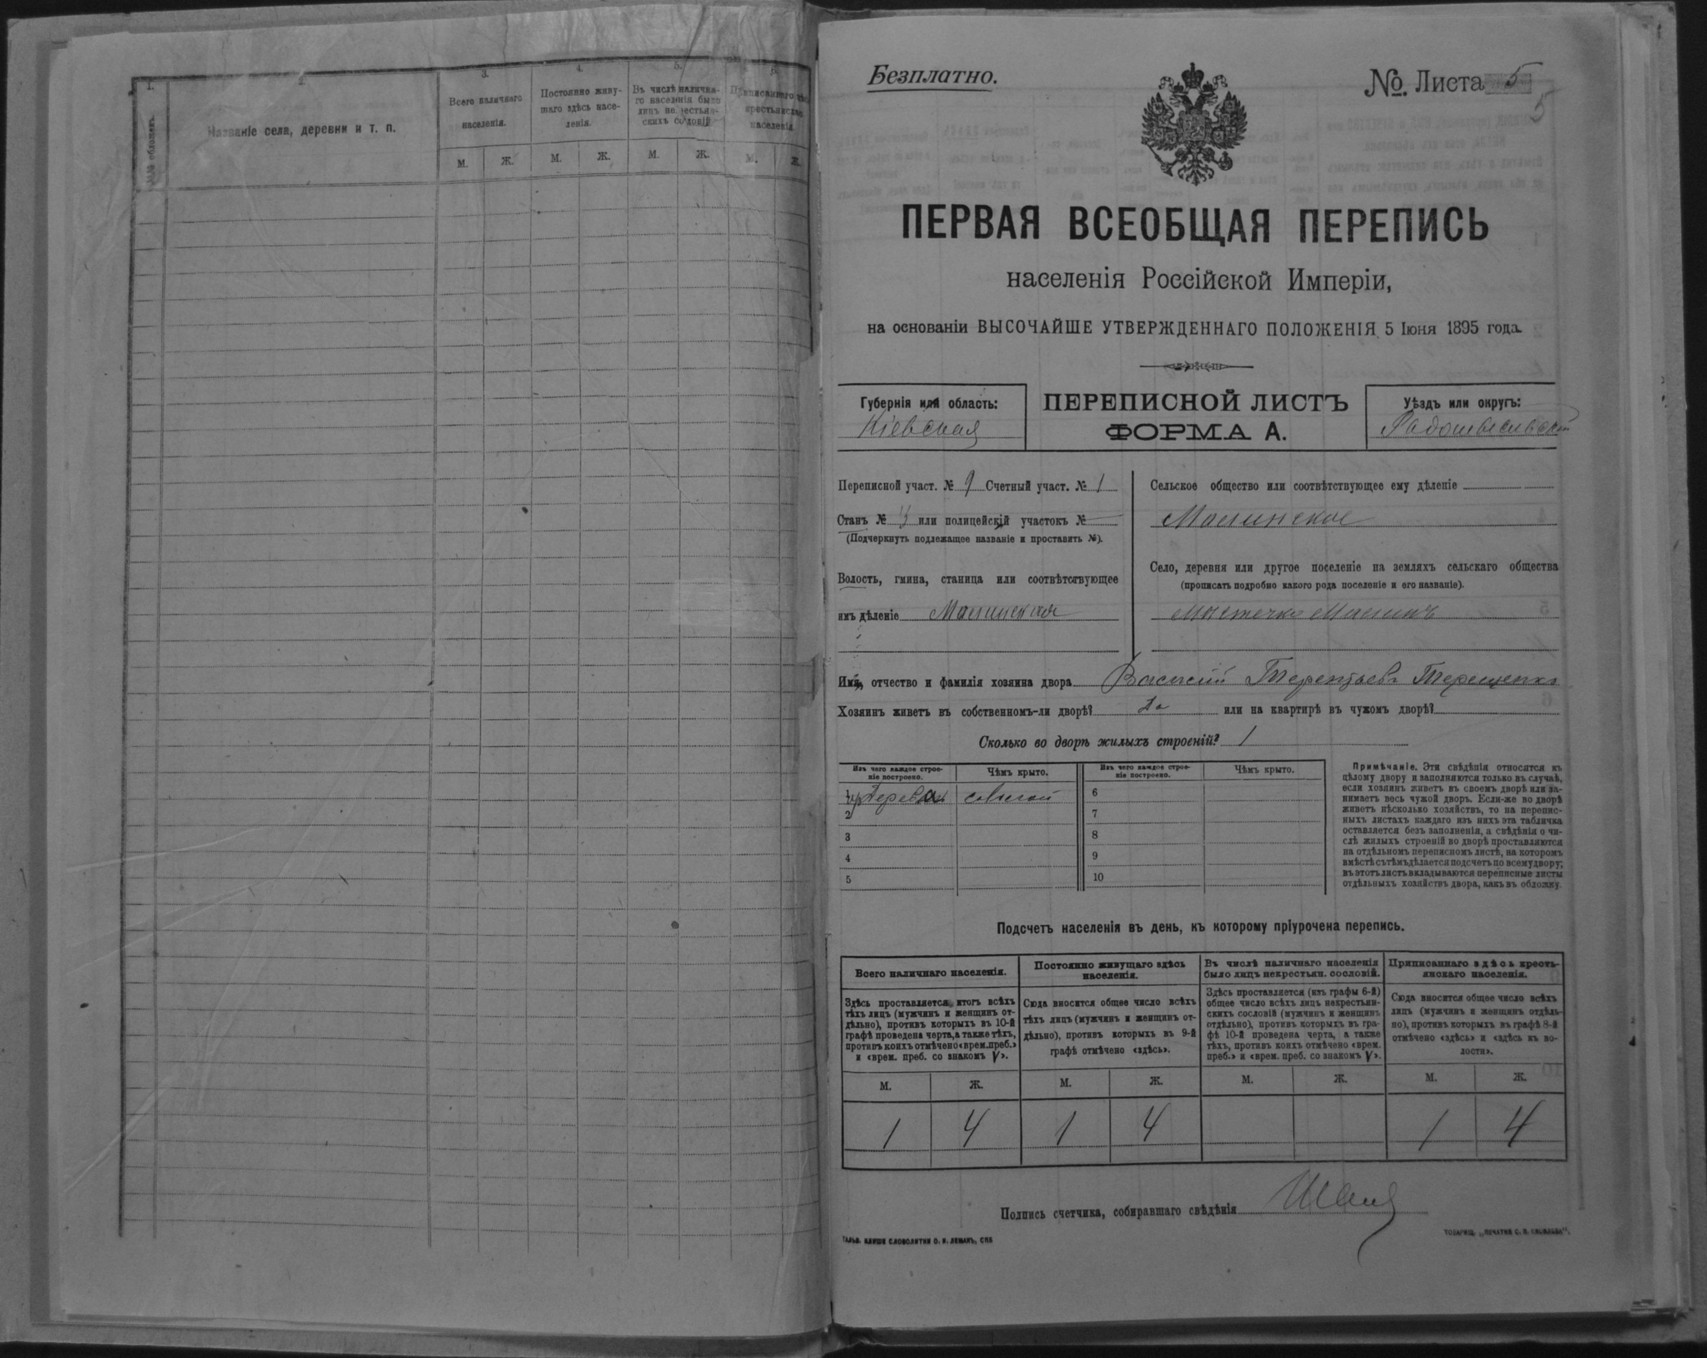 1.
2.
3.
4.
5.
Название села, деревни и т. п.
Всего наличнаго
населенія.
Постоянно живу-
щаго здѣсь насе-
ленія.
Въ числѣ налична-
го населенія было
лицъ не крестьян-
скихъ сословій
Приписаннаго здѣсь
крестьянскаго
населенія
М. Ж. М. Ж. М. Ж. М. Ж.
Безплатно.
№ Листа 5
5
ПЕРВАЯ ВСЕОБЩАЯ ПЕРЕПИСЬ
населенія Россійской Имперіи,
на основаніи ВЫСОЧАЙШЕ УТВЕРЖДЕННАГО ПОЛОЖЕНІЯ 5 Іюня 1895 года.
Губернія или область:
Кіевская
ПЕРЕПИСНОЙ ЛИСТЪ
ФОРМА А.
Уѣздъ или округъ:
Переписной участ. № 9 Счетный участ. № 1
Станъ № или полицейскій участокъ №
(Подчеркнуть подлежащее названіе и проставить №).
Волость, гмина, станица или соотвѣтствующее
имъ дѣленіе Малинская
Сельское общество или соотвѣтствующее ему дѣленіе
Малинское
Село, деревня или другое поселеніе на земляхъ сельскаго общества
(прописать подробно какого рода поселеніе и его названіе).
Мѣстечко Малинъ
Имя, отчество и фамилія хозяина двора Василій Терентьевъ Терещенко
Хозяинъ живетъ въ собственномъ-ли дворѣ? Да или на квартирѣ въ чужомъ дворѣ?
Сколько во дворѣ жилыхъ строеній? 1
Изъ чего каждое строе-
ніе построено.
Чѣмъ крыто.
Изъ чего каждое строе-
ніе построено.
Чѣмъ крыто.
1 дерева соломой
2
3
4
5
6
7
8
9
10
Примѣчаніе. Эти свѣдѣнія относятся къ
цѣлому двору и заполняются только въ случаѣ,
если хозяинъ живетъ въ своемъ дворѣ или за-
нимаетъ весь чужой дворъ. Если-же во дворѣ
живетъ нѣсколько хозяйствъ, то на перепис-
ныхъ листахъ каждаго изъ нихъ эта табличка
оставляется безъ заполненія, а свѣдѣнія о чи-
слѣ жилыхъ строеній во дворѣ проставляются
на отдѣльномъ переписномъ листѣ, на которомъ
вмѣстѣ съ тѣмъ дѣлается подсчетъ по всему двору;
въ этотъ листъ вкладываются переписные листы
отдѣльныхъ хозяйствъ двора, какъ въ обложку.
Подсчетъ населенія въ день, къ которому пріурочена перепись.
Всего наличнаго населенія.
Здѣсь проставляется итогъ всѣхъ
тѣхъ лицъ (мужчинъ и женщинъ от-
дѣльно), противъ которыхъ въ 10-й
графѣ проведена черта, а также тѣхъ,
противъ коихъ отмѣчено «врем. преб.»
и «врем. преб. со знакомъ V».
Постоянно живущаго здѣсь
населенія.
Сюда вносится общее число всѣхъ
тѣхъ лицъ (мужчинъ и женщинъ от-
дѣльно), противъ которыхъ въ 9-й
графѣ отмѣчено «здѣсь».
Въ числѣ наличнаго населенія
было лицъ некрестьян. сословій.
Здѣсь проставляется (изъ графы 6-й)
общее число всѣхъ лицъ некрестьян-
скихъ сословій (мужчинъ и женщинъ
отдѣльно), противъ которыхъ въ гра-
фѣ 10-й проведена черта, а также
тѣхъ, противъ коихъ отмѣчено «врем.
преб.» и «врем. преб. со знакомъ V».
Приписаннаго здѣсь кресть-
янскаго населенія.
Сюда вносится общее число всѣхъ
лицъ (мужчинъ и женщинъ отдѣль-
но), противъ которыхъ въ графѣ 8-й
отмѣчено «здѣсь» и «здѣсь въ во-
лости».
М. Ж. М. Ж. М. Ж. М. Ж.
1 4 1 4 1 4
Подпись счетчика, собиравшаго свѣдѣнія